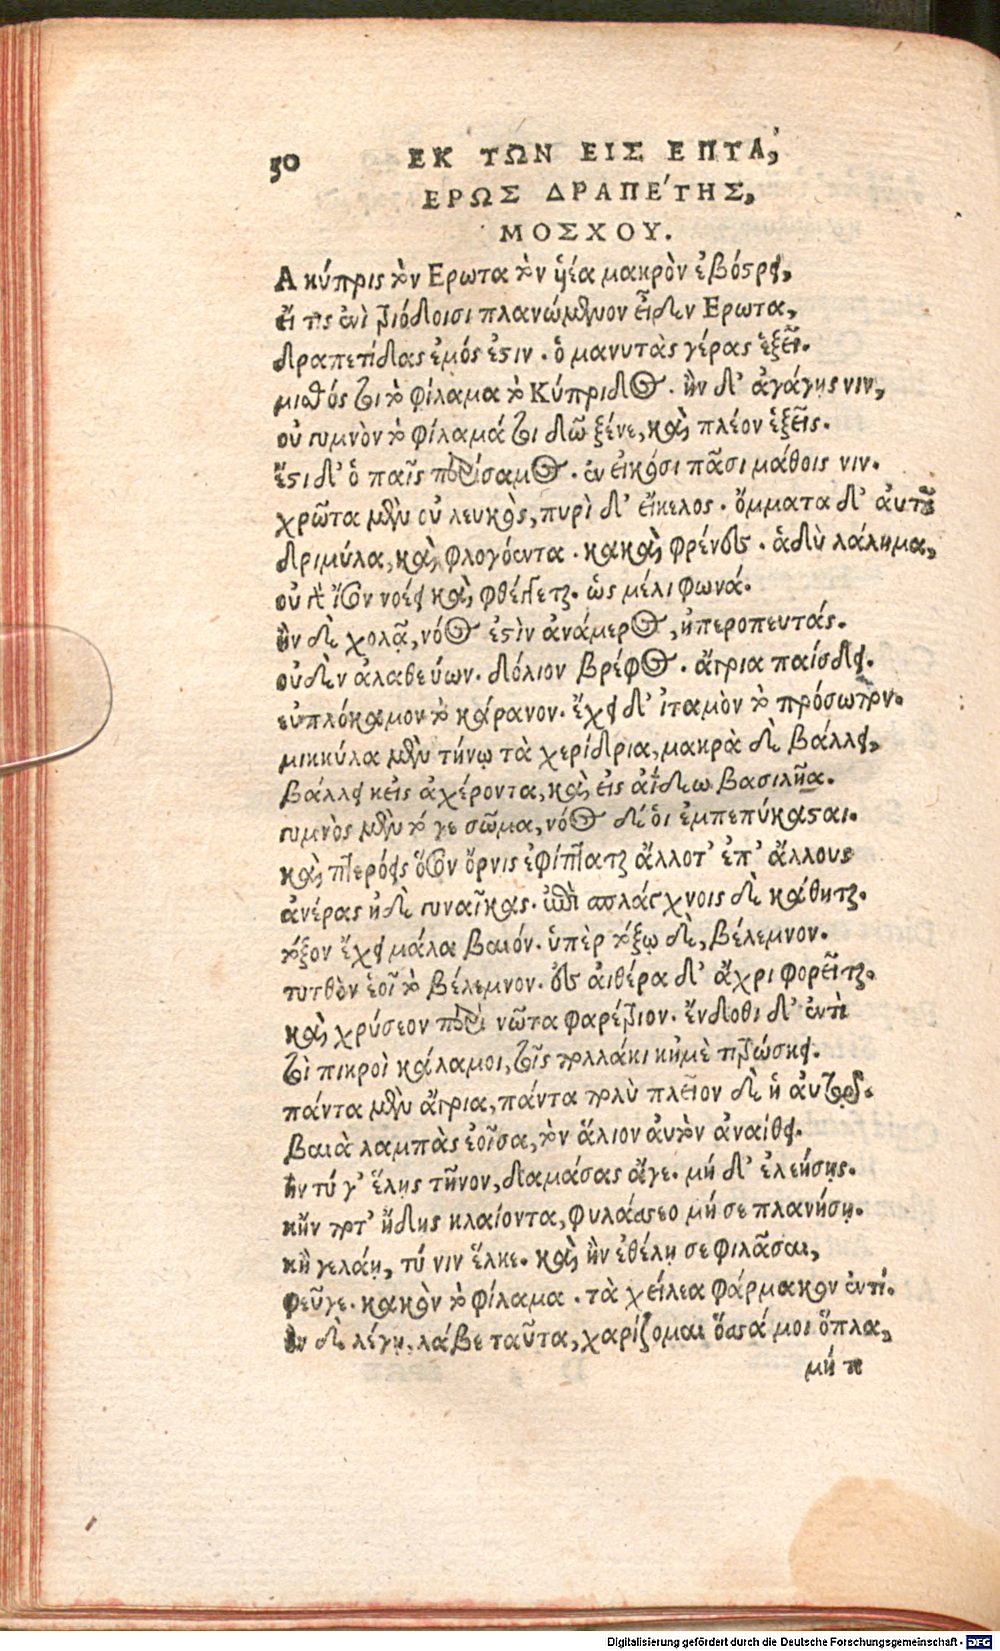 50 ΕΚ ΤΩΝ ΕΙΣ ΕΠΤΑ,
ΕΡΩΣ ΔΡΑΠΕ΄ΤΗΣ,
ΜΟΣΧΟΥ.
Α κύπρις τὸν Ερωτα τὸν ὑέα μακρὸν ἐβόστρει,
εἴ τις ἐνὶ τριόδοισι πλανώμενον εἶδεν Ερωτα,
δραπετίδας ἐμός ἐστιν. ὁ μανυτὰς γέρας ἑξεῖ.
μισθός τοι τὸ φίλαμα τὸ Κύπριδος. ἢν δ' ἀγάγῃς νιν,
οὐ γυμνὸν τὸ φίλαμά τοι δῶ ξένε, καὶ πλέον ἑξεῖς.
ἔστι δ' ὁ παῖς περίσαμος. ἐν εἰκόσι πᾶσι μάθοις νιν.
χρῶτα μὲν οὐ λευκὸς, πυρὶ δ' εἴκελος. ὄμματα δ' αὐτοῦ
δριμύλα, καὶ φλογόεντα. κακαὶ φρένες. ἁδὺ λάλημα,
οὐ γὰρ ἴσον νοέει καὶ φθέγγεται. ὡς μέλι φωνά.
ἢν δὲ χολᾷ, νόος ἐστὶν ἀνάμερος, ἠπεροπευτάς.
οὐδὲν ἀλαθεύων. δόλιον βρέφος. ἄγρια παίσδει.
εὐπλόκαμον τὸ κάρανον. ἔχει δ' ἰταμὸν τὸ πρόσωπον.
μικκύλα μὲν τήνῳ τὰ χερίδρια, μακρὰ δὲ βάλλει,
βάλλει κεἰς ἀχέροντα, καὶ εἰς ἀΐδεω βασιλῆα.
γυμνὸς μὲν τό γε σῶμα, νόος δέ οἱ ἐμπεπύκασται.
καὶ πτερόεις ὅσον ὄρνις ἐφίπταται ἄλλοτ' ἐπ' ἄλλους
ἀνέρας ἠδὲ γυναῖκας. ἐπὶ σπλάγχνοις δὲ κάθηται.
τόξον ἔχει μάλα βαιόν. ὑπὲρ τόξῳ δὲ, βέλεμνον.
τυτθὸν ἑοῖ τὸ βέλεμνον. ἐς αἰθέρα δ' ἄχρι φορεῖται.
καὶ χρύσεον περὶ νῶτα φαρέτριον. ἔνδοθι δ' ἐντὶ
τοὶ πικροὶ κάλαμοι, τοῖς πολλάκι κἠμὲ τιτρώσκει.
πάντα μὲν ἄγρια, πάντα πολὺ πλεῖον δὲ ἡ αὐτοῦ.
βαιὰ λαμπὰς ἐοῖσα, τὸν ἅλιον αὐτὸν ἀναίθει.
ἢν τύ γ' ἕλῃς τῆνον, δαμάσας ἄγε. μή δ' ἐλεήσῃς.
κἤν ποτ' ἤδῃς κλαίοντα, φυλάσσεο μή σε πλανήσῃ.
κἢ γελάῃ, τύ νιν ἕλκε. καὶ ἢν ἐθέλῃ σε φιλᾶσαι,
φεῦγε. κακὸν τὸ φίλαμα. τὰ χείλεα φάρμακον ἐντί.
ἢν δὲ λέγῃ. λάβε ταῦτα, χαρίζομαι ὅσσά μοι ὅπλα,
μή τι
Digitalisierung gefördert durch die Deutsche Forschungsgemeinschaft - DFG